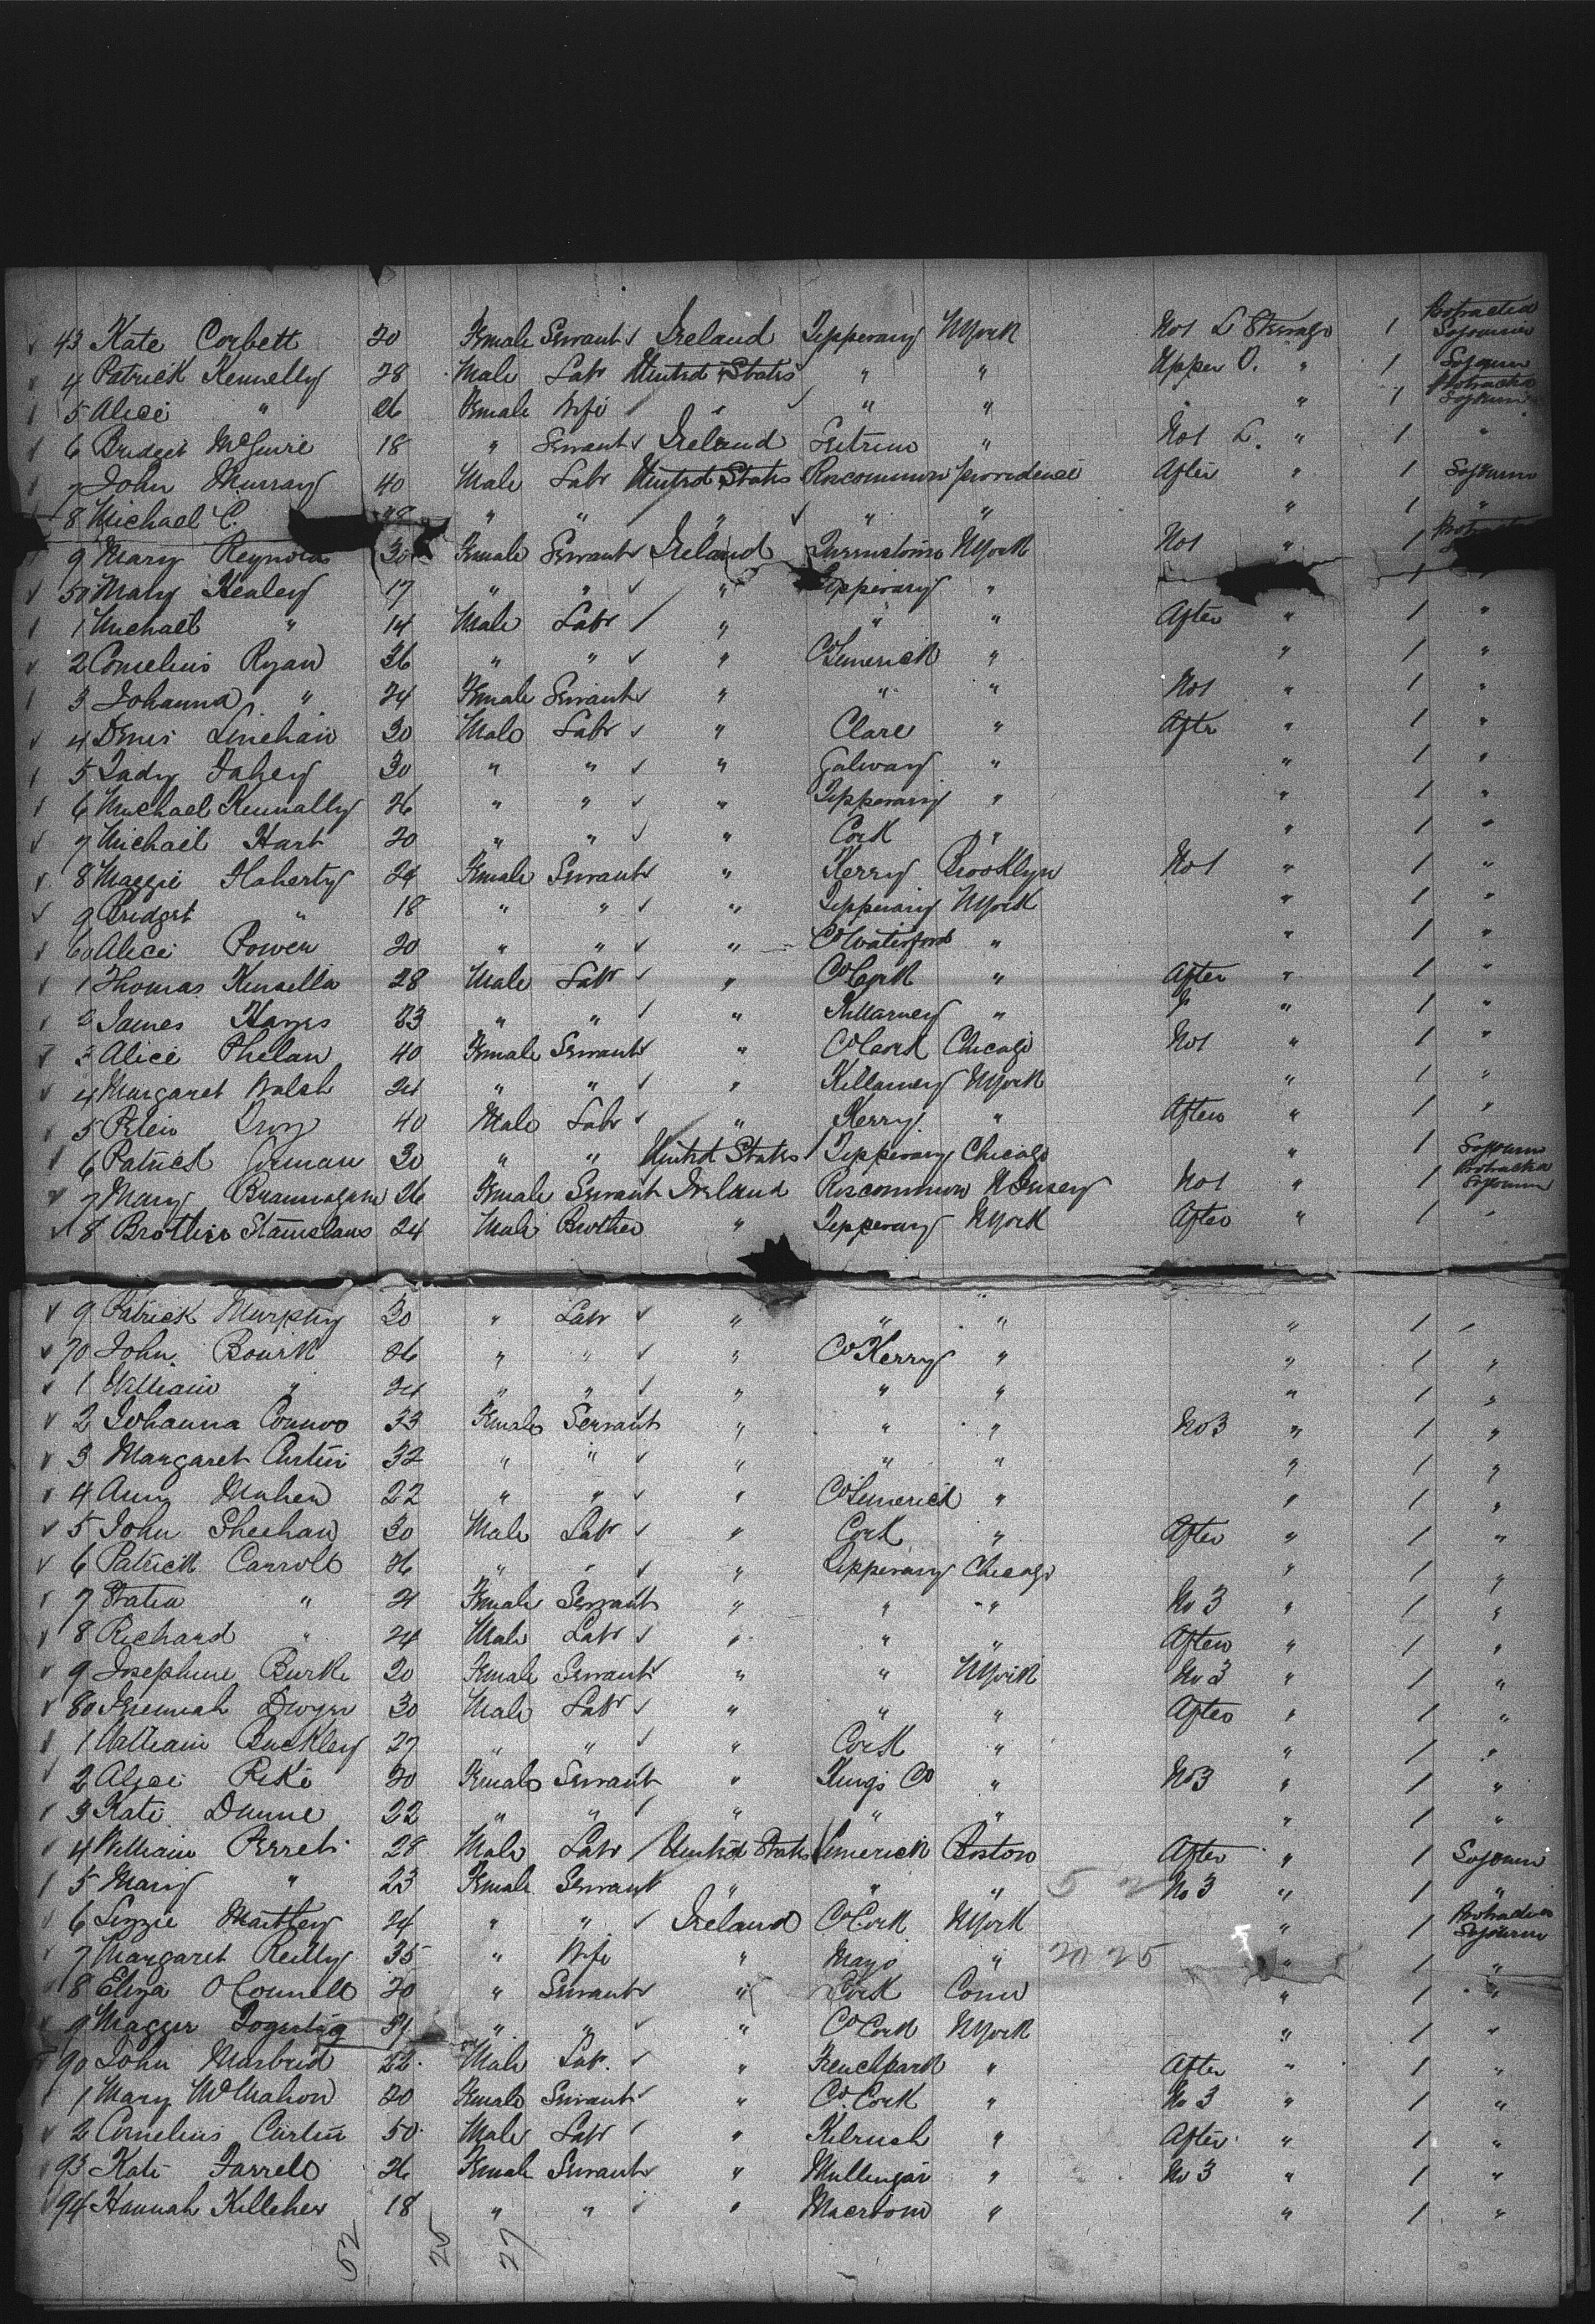 43 Kate Corbett 20 Female Servant Ireland Tipperary NYork No1 L Steerage 1 Protracted Sojourn
4 Patrick Kennelly 28 Male Labr United States " " Upper O. " 1 Sojourn
5 Alice " 26 Female Wife " " " " " 1 Protracted Sojourn
6 Bridget McGuire 18 " Servant Ireland Leitrim " No1 L. " 1 "
7 John Murray 40 Male Labr United States Roscommon Providence After " 1 Sojourn
8 Michael C. " " " " " " 1 "
9 Mary Reynolds 30 Female Servant Ireland Queenstown NYork No1 " 1
50 Mary Healey 17 " " " Tipperary " 1 "
1 Michael " 14 Male Labr " " " After " 1 "
2 Cornelius Ryan 36 " " " Co Limerick " " 1 "
3 Johanna " 24 Female Servant " " " No1 " 1 "
4 Denis Linehan 30 Male Labr " Clare " After " 1 "
5 Fahey 30 " " " Galway " " 1 "
6 Michael Kennally 26 " " " Tipperary " " 1 "
7 Michael Hart 20 " " " Cork " " 1 "
8 Maggie Flaherty 24 Female Servant " Kerry Brooklyn No1 " 1 "
9 Bridget " 18 " " " Tipperary NYork " 1 "
60 Alice Power 20 " " " Co Waterford " " 1 "
1 Thomas Kinsella 28 Male Labr " Co Cork " After " 1 "
2 James Hayes 23 " " " Killarney " " " 1 "
3 Alice Phelan 40 Female Servant " Co Cork Chicago No1 " 1 "
4 Margaret Walsh 24 " " " Killarney NYork " 1 "
5 Peter 40 Male Labr " Kerry " After " 1 "
6 Patrick Gorman 30 " " United States Tipperary Chicago " 1 Sojourn
7 Mary Brannagan 26 Female Servant Ireland Roscommon N Jersey No1 " 1 Protracted Sojourn
8 Brother Stanislaus 24 Male Brother " Tipperary NYork After " 1 "
9 Patrick Murphy 30 " Labr " " " " 1 "
70 John Bourk 26 " " " Co Kerry " " 1 "
1 William " 24 " " " " " " 1 "
2 Johanna Connor 33 Female Servant " " " No3 " 1 "
3 Margaret Curtin 32 " " " " " " 1 "
4 Ann Maher 22 " " " Co Limerick " " 1 "
5 John Sheehan 30 Male Labr " Cork " After " 1 "
6 Patrick Carroll 26 " " " Tipperary Chicago " 1 "
7 Statia " 21 Female Servant " " " No 3 " 1 "
8 Richard " 24 Male Labr " " " After " 1 "
9 Josephine Burke 20 Female Servant " " NYork No 3 " 1 "
80 Jeremiah Dwyer 30 Male Labr " " " After " 1 "
1 William Buckley 27 " " " Cork " " 1 "
2 Alice 20 Female Servant " Kings Co " No3 " 1 "
3 Kate Dunne 22 " " " " " " 1 "
4 William Perrett 28 Male Labr United States Limerick Boston After " 1 Sojourn
5 Mary " 23 Female Servant " " " No 3 " 1 "
6 Lizzie 24 " " Ireland Co Cork NYork " 1 Protracted Sojourn
7 Margaret Reilly 35 " Wife " Mayo " 20 25 " 1 "
8 Eliza O Connell 20 " Servant " Cork Conn " 1 "
9 " " " Co Cork NYork " 1 "
90 John 22 Male Labr. " Frenchpark " After " 1 "
1 Mary McMahon 20 Female Servant " Co. Cork " No 3 " 1 "
2 Cornelius Curtin 50 Male Labr " Kilrush " After " 1 "
93 Kate Farrell 26 Female Servant " Mullingar " No 3 " 1 "
94 Hannah Killeher 18 " " " Macroom " " 1 "
52 25 27